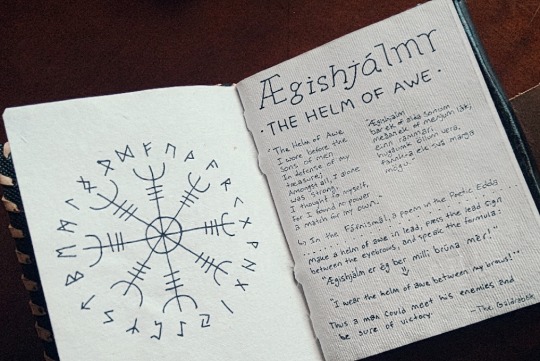 Ægishjálmr
· THE HELM OF AWE ·
· The Helm of Awe
I wore before the
sons of men
in defense of my
treasure;
Amongst all, I alone
was strong,
I thought to myself,
for I found no power
a match for my own.
Ægishjálm
bar ek of alda sonum
meðan ek of menjum lák;
einn rammari
hugðumk öllum vera,
fannk-a ek svá marga
mögu.
↳ In the Fáfnismál, a poem in the Poetic Edda
make a helm of awe in lead, press the lead sign
between the eyebrows, and speak the formula:
"Ægishjálm er ég ber milli brúna mér!"
"I wear the helm of awe between my brows!"
Thus a man could meet his enemies and
be sure of victory.
— The Galdrabók